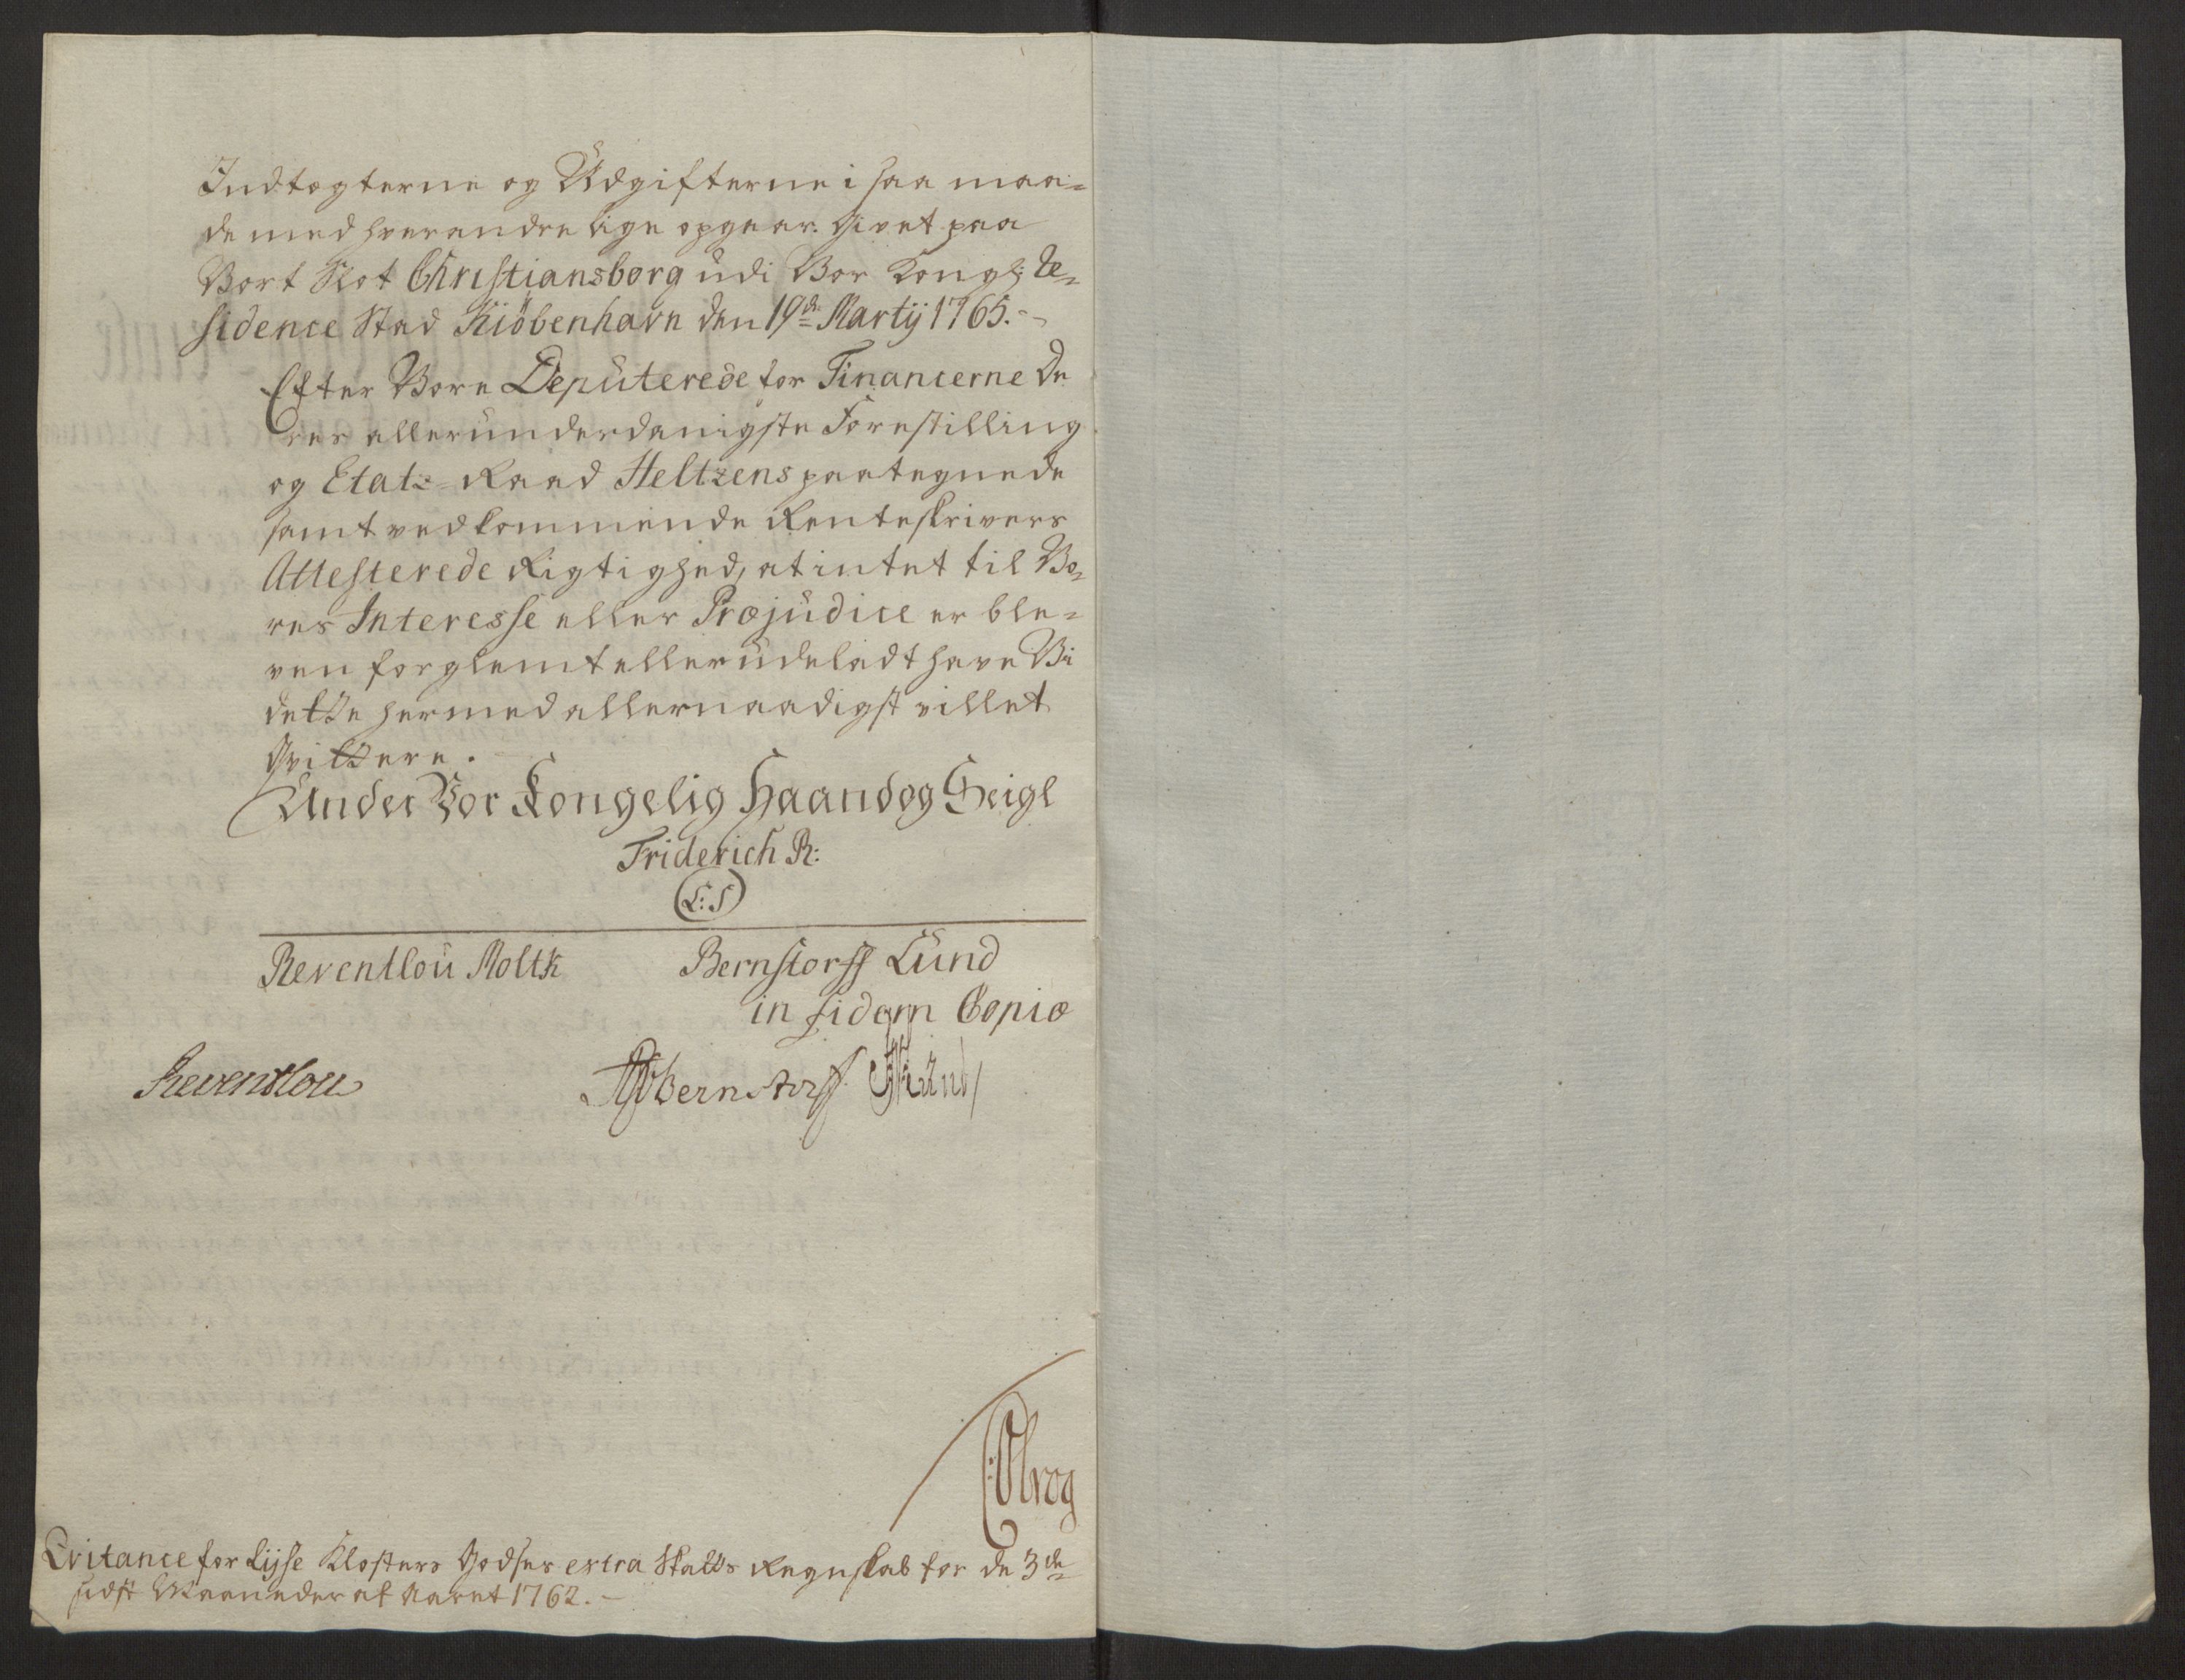 Indtægterne og Udgifterne i saa maa=
de med hverandre lige opgaar. Givet paa
Vort Slot Christiansborg udi Vor Kongl: Re=
sidence Stad Kiöbenhavn den 19de Martij 1765.
Efter Vore Deputerede for Financerne De
res allerunderdanigste Forestilling
og Etats-Raad Heltzens paategnede
samt vedkommende Renteskrivers
Attesterede Rigtighed, at intet til Vo=
res Interesse eller Præjudice er ble=
ven forglemt eller udeladt have Vi
dette hermed allernaadigst villet
Qvittere.
Under Vor Kongelig Haand og Seigl
Friderich R:
(L:S)
Reventlou Moltk Bernstorff Lund
in fidem Copiæ
Reventlou Bernstorff Lund
Qvitance for Lyse Klosters Godses extra Skatts Regnskab for de 3de
sidst Maaneder af Aaret 1762.